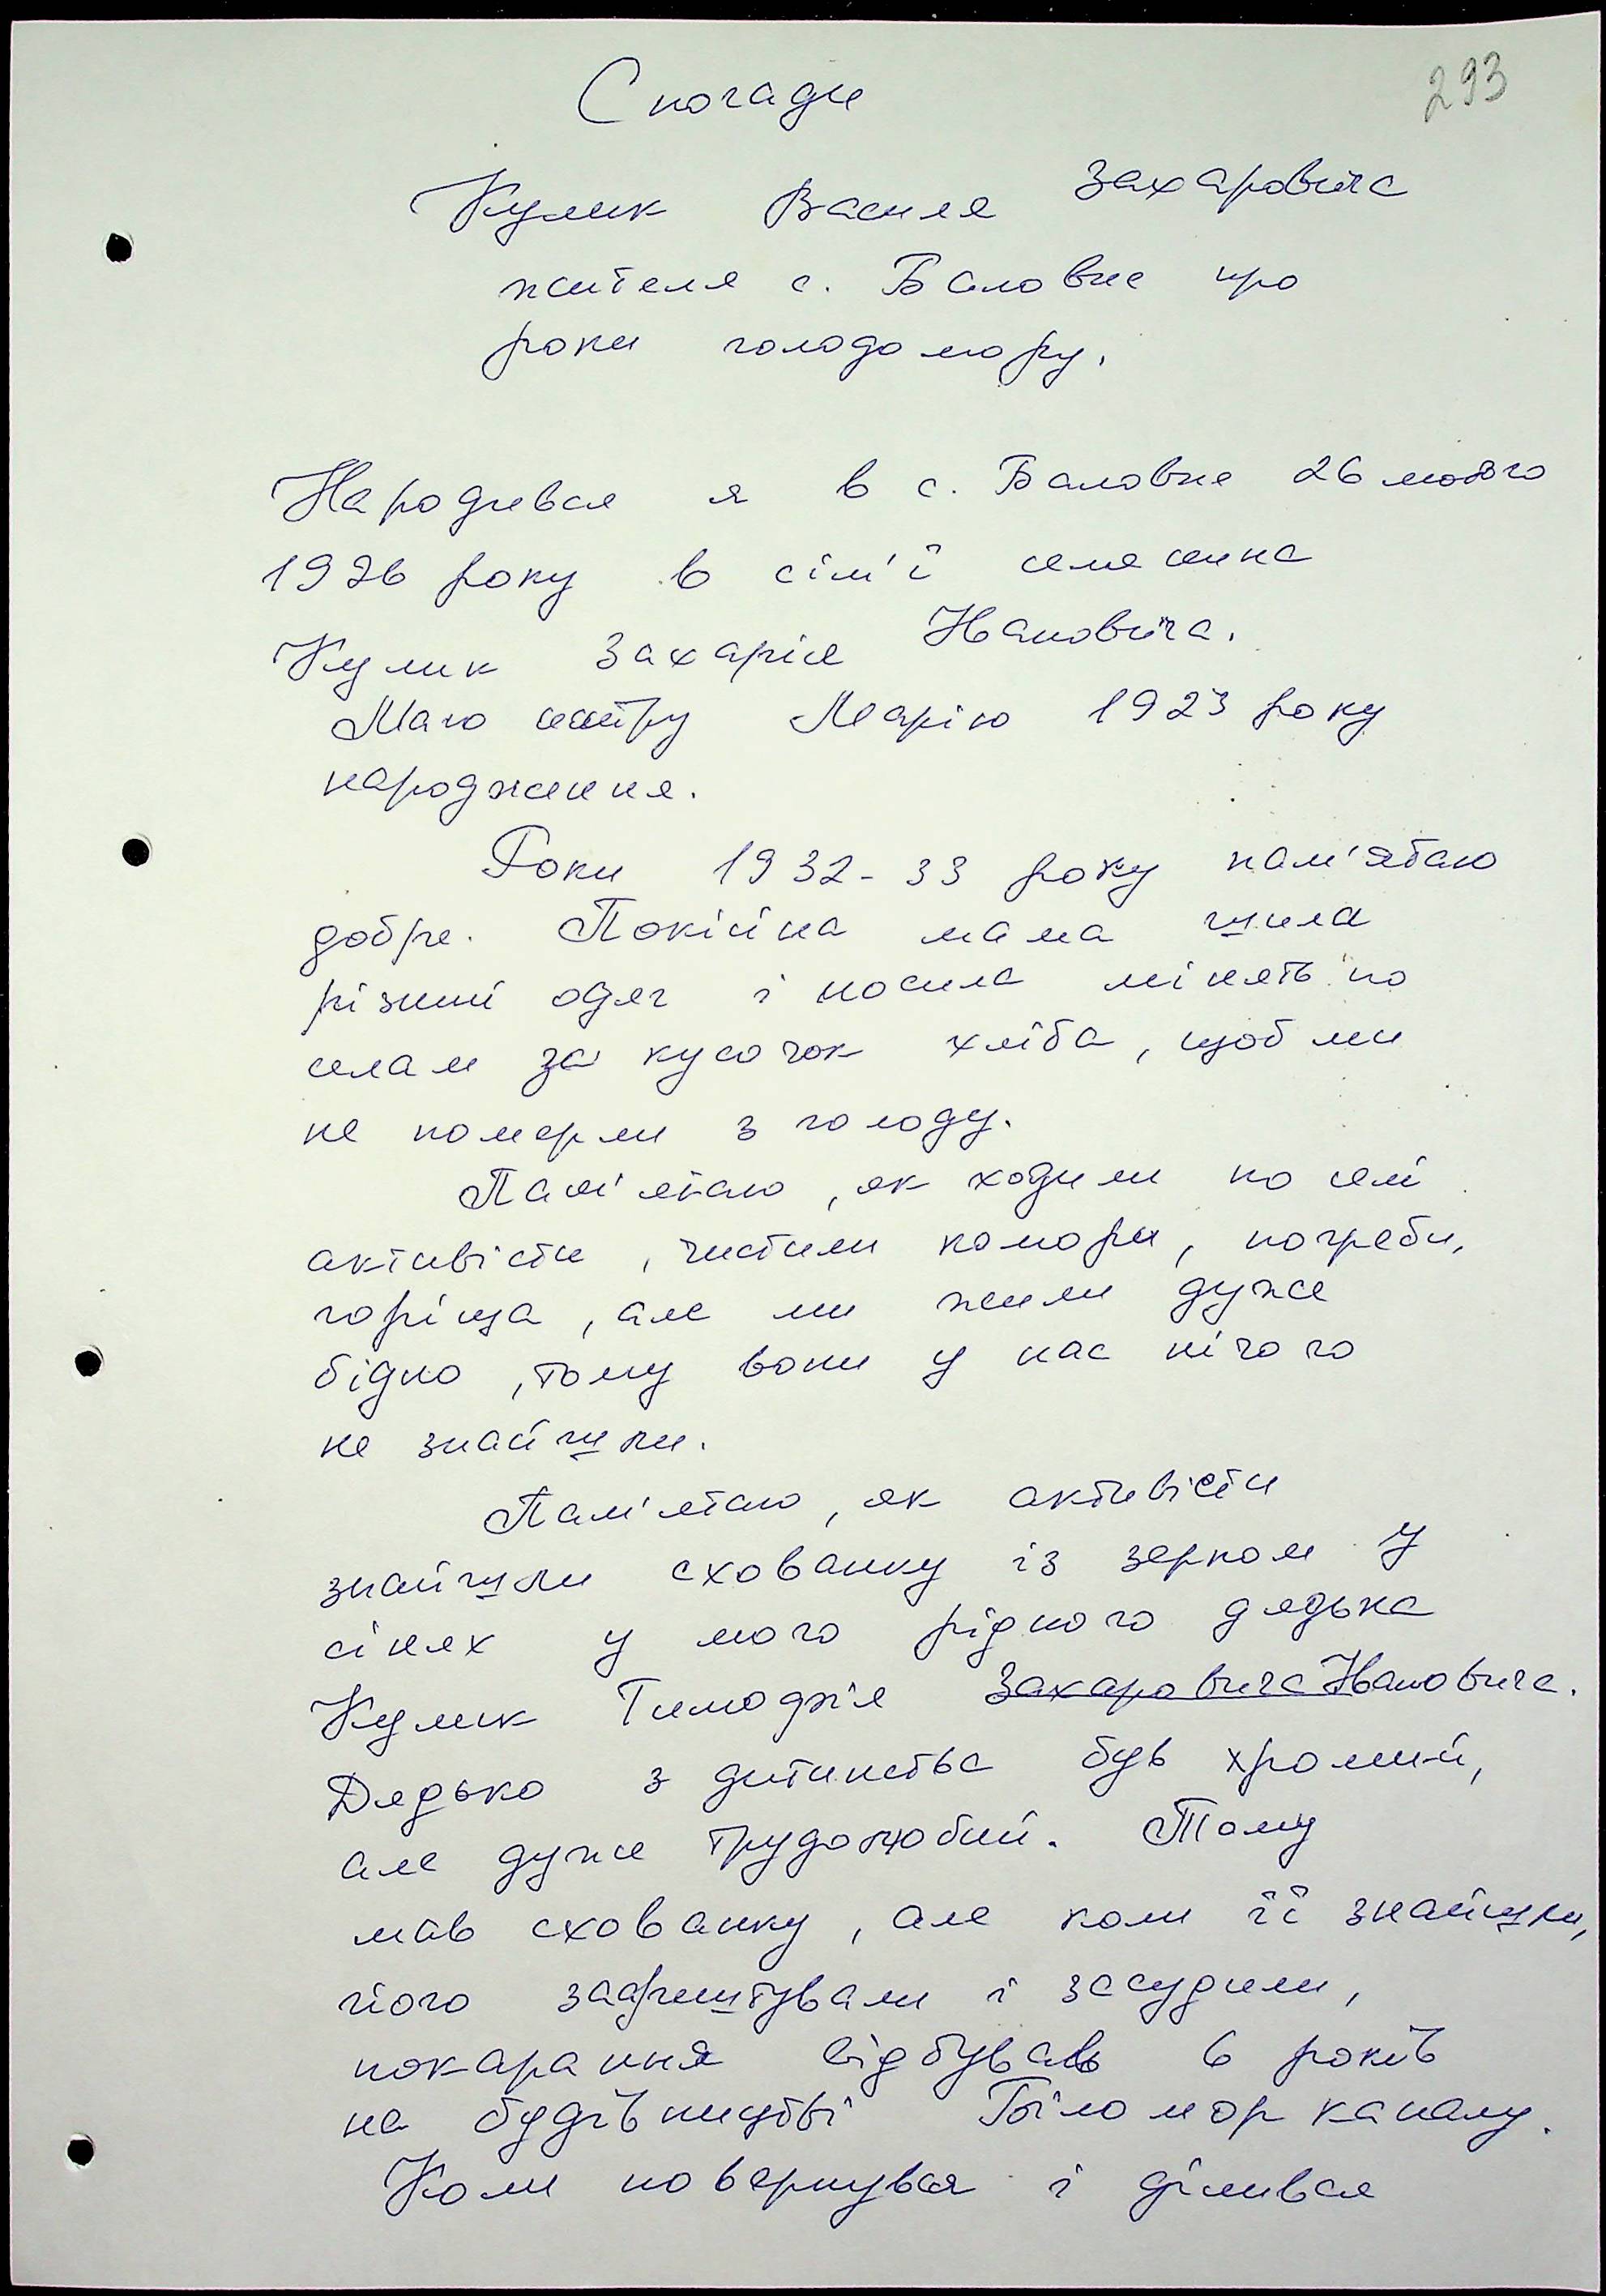 293
Спогади
Кулик Василя Захаровича
жителя с. Баловне про
роки голодомору.
Народився я в с. Баловне 26 лютого
1926 року в сім'ї селянина
Кулик Захарія Івановича.
Маю сестру Марію 1923 року
народження.
Роки 1932-33 року пам'ятаю
добре. Покійна мама шила
різний одяг і носила мінять по
селам за кусочок хліба, щоб ми
не померли з голоду.
Пам'ятаю, як ходили по селі
активісти, чистили комори, погреби,
горіща, але ми жили дуже
бідно, тому вони у нас нічого
не знайшли.
Пам'ятаю, як активісти
знайшли схованку із зерном у
сінях у мого рідного дядька
Кулик Тимофія Захаровича Івановича.
Дядько з дитинства був хромий,
але дуже трудолюбий. Тому
мав схованку, але коли її знайшли,
його заарештували і засудили,
покарання відбував 6 років
на будівництві Біломорканалу.
Коли повернувся і ділився